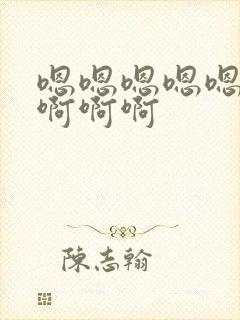 嗯嗯嗯嗯嗯
啊啊啊
陳志翰